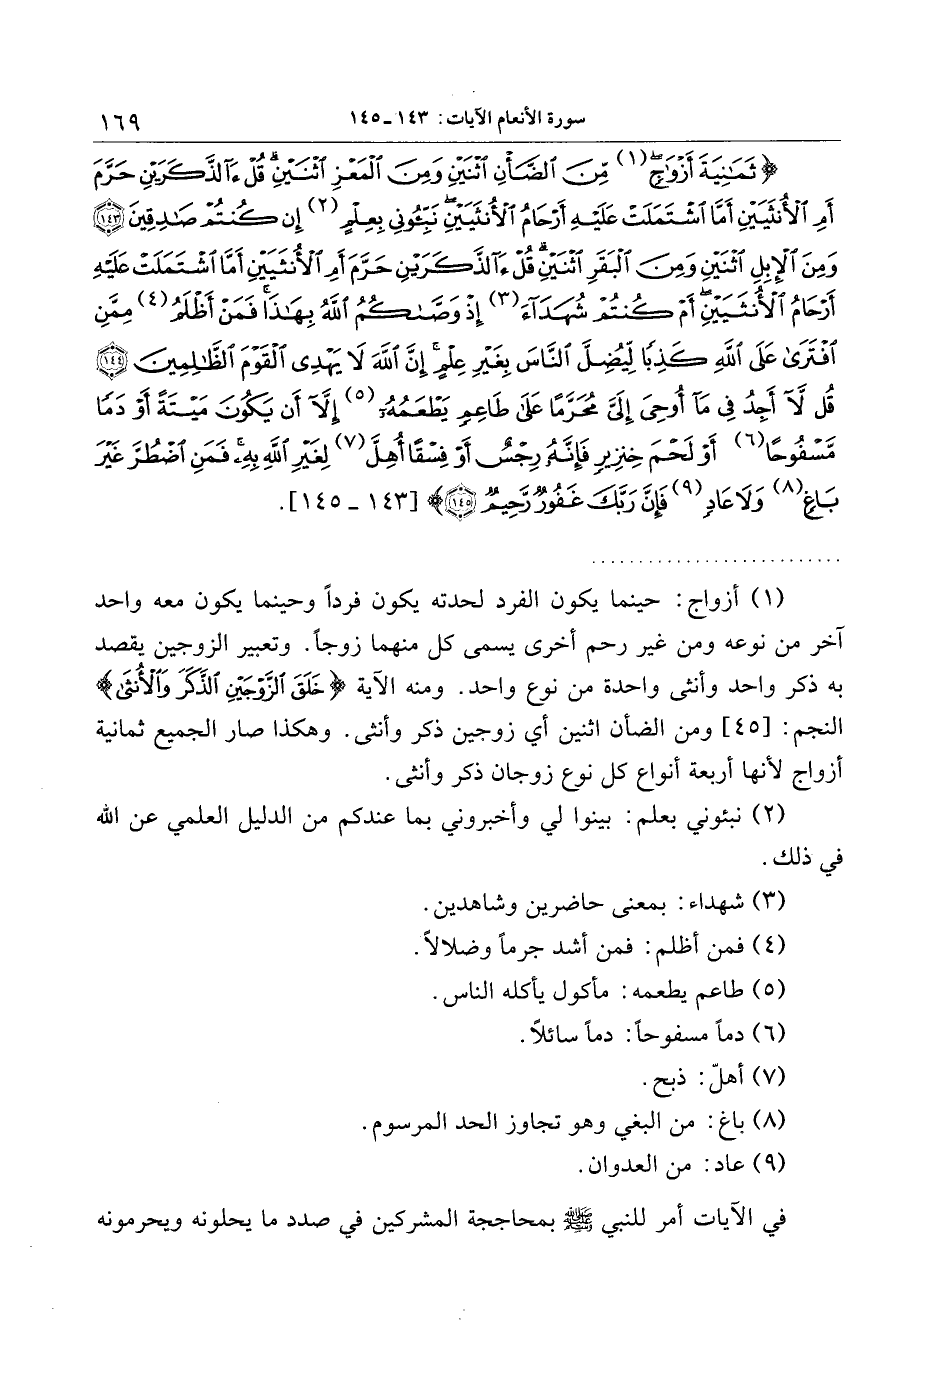 سورة الأنعام الآيات: ١٤٣ ـ ١٤٥ ١٦٩
﴿ ثَمَٰنِيَةَ أَزۡوَٰجٖۖ (١) مِّنَ ٱلضَّأۡنِ ٱثۡنَيۡنِ وَمِنَ ٱلۡمَعۡزِ ٱثۡنَيۡنِۗ قُلۡ ءَآلذَّكَرَيۡنِ حَرَّمَ
أَمِ ٱلۡأُنثَيَيۡنِ أَمَّا ٱشۡتَمَلَتۡ عَلَيۡهِ أَرۡحَامُ ٱلۡأُنثَيَيۡنِۖ نَبِّـُٔونِي بِعِلۡمٍ (٢) إِن كُنتُمۡ صَٰدِقِينَ ١٤٣
وَمِنَ ٱلۡإِبِلِ ٱثۡنَيۡنِ وَمِنَ ٱلۡبَقَرِ ٱثۡنَيۡنِۗ قُلۡ ءَآلذَّكَرَيۡنِ حَرَّمَ أَمِ ٱلۡأُنثَيَيۡنِ أَمَّا ٱشۡتَمَلَتۡ عَلَيۡهِ
أَرۡحَامُ ٱلۡأُنثَيَيۡنِۖ أَمۡ كُنتُمۡ شُهَدَآءَ (٣) إِذۡ وَصَّىٰكُمُ ٱللَّهُ بِهَٰذَاۚ فَمَنۡ أَظۡلَمُ (٤) مِمَّنِ
ٱفۡتَرَىٰ عَلَى ٱللَّهِ كَذِبٗا لِّيُضِلَّ ٱلنَّاسَ بِغَيۡرِ عِلۡمٍۚ إِنَّ ٱللَّهَ لَا يَهۡدِي ٱلۡقَوۡمَ ٱلظَّٰلِمِينَ ١٤٤
قُل لَّآ أَجِدُ فِي مَآ أُوحِيَ إِلَيَّ مُحَرَّمًا عَلَىٰ طَاعِمٖ يَطۡعَمُهُۥٓ (٥) إِلَّآ أَن يَكُونَ مَيۡتَةً أَوۡ دَمٗا
مَّسۡفُوحًا (٦) أَوۡ لَحۡمَ خِنزِيرٖ فَإِنَّهُۥ رِجۡسٌ أَوۡ فِسۡقًا أُهِلَّ (٧) لِغَيۡرِ ٱللَّهِ بِهِۦۚ فَمَنِ ٱضۡطُرَّ غَيۡرَ
بَاغٖ (٨) وَلَا عَادٖ (٩) فَإِنَّ رَبَّكَ غَفُورٞ رَّحِيمٞ ١٤٥ ﴾ [١٤٣ ـ ١٤٥].
(١) أزواج: حينما يكون الفرد لحدته يكون فرداً وحينما يكون معه واحد
آخر من نوعه ومن غير رحم أخرى يسمى كل منهما زوجاً. وتعبير الزوجين يقصد
به ذكر واحد وأنثى واحدة من نوع واحد. ومنه الآية ﴿ خَلَقَ ٱلزَّوۡجَيۡنِ ٱلذَّكَرَ وَٱلۡأُنثَىٰ ﴾
النجم: [٤٥] ومن الضأن اثنين أي زوجين ذكر وأنثى. وهكذا صار الجميع ثمانية
أزواج لأنها أربعة أنواع كل نوع زوجان ذكر وأنثى.
(٢) نبئوني بعلم: بينوا لي وأخبروني بما عندكم من الدليل العلمي عن الله
في ذلك.
(٣) شهداء: بمعنى حاضرين وشاهدين.
(٤) فمن أظلم: فمن أشد جرماً وضلالاً.
(٥) طاعم يطعمه: مأكول يأكله الناس.
(٦) دماً مسفوحاً: دماً سائلاً.
(٧) أهلّ: ذبح.
(٨) باغ: من البغي وهو تجاوز الحد المرسوم.
(٩) عاد: من العدوان.
في الآيات أمر للنبي ﷺ بمحاججة المشركين في صدد ما يحلونه ويحرمونه